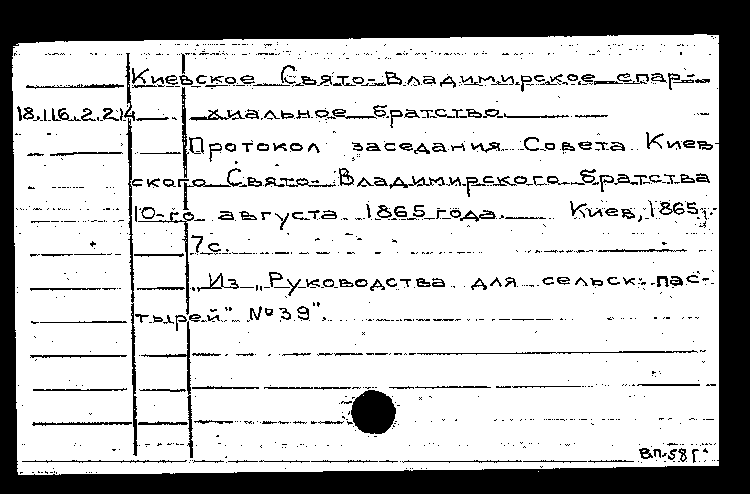 Киевское Свято-Владимирское епар-
18.116.2.214 хиальное братство.
Протокол заседания Совета Киев-
ского Свято-Владимирского братства
10-го августа 1865 года. Киев, 1865.
7с.
„Из „Руководства для сельск. пас-
тырей" №39".